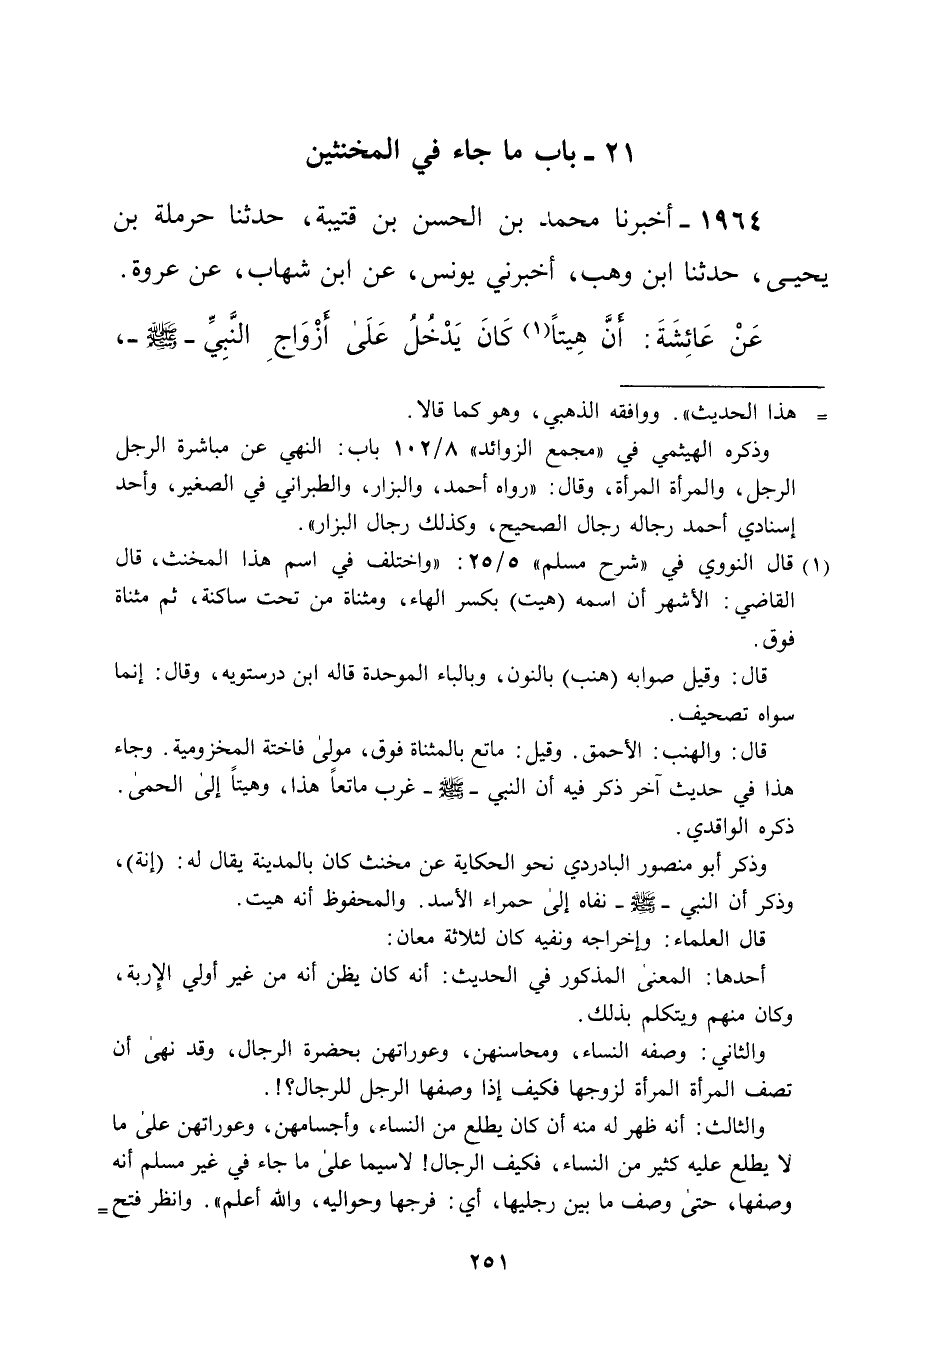 ٢١ ـ باب ما جاء في المخنثين
١٩٦٤ ـ أخبرنا محمد بن الحسن بن قتيبة، حدثنا حرملة بن
يحيـى، حدثنا ابن وهب، أخبرني يونس، عن ابن شهاب، عن عروة.
عَنْ عَائِشَةَ: أَنَّ هِيتاً(١) كَانَ يَدْخُلُ عَلَىٰ أَزْوَاجِ النَّبِيِّ ـ ﷺ ـ،
= هذا الحديث». ووافقه الذهبي، وهو كما قالا.
وذكره الهيثمي في «مجمع الزوائد» ١٠٢/٨ باب: النهي عن مباشرة الرجل
الرجل، والمرأة المرأة، وقال: «رواه أحمد، والبزار، والطبراني في الصغير، وأحد
إسنادي أحمد رجاله رجال الصحيح، وكذلك رجال البزار».
(١) قال النووي في «شرح مسلم» ٢٥/٥: «واختلف في اسم هذا المخنث، قال
القاضي: الأشهر أن اسمه (هيت) بكسر الهاء، ومثناة من تحت ساكنة، ثم مثناة
فوق.
قال: وقيل صوابه (هنب) بالنون، وبالباء الموحدة قاله ابن درستويه، وقال: إنما
سواه تصحيف.
قال: والهنب: الأحمق. وقيل: ماتع بالمثناة فوق، مولىٰ فاختة المخزومية. وجاء
هذا في حديث آخر ذكر فيه أن النبي ـ ﷺ ـ غرب ماتعاً هذا، وهيتاً إلىٰ الحمىٰ.
ذكره الواقدي.
وذكر أبو منصور البادردي نحو الحكاية عن مخنث كان بالمدينة يقال له: (إنة)،
وذكر أن النبي ـ ﷺ ـ نفاه إلىٰ حمراء الأسد. والمحفوظ أنه هيت.
قال العلماء: وإخراجه ونفيه كان لثلاثة معان:
أحدها: المعنىٰ المذكور في الحديث: أنه كان يظن أنه من غير أولي الإربة،
وكان منهم ويتكلم بذلك.
والثاني: وصفه النساء، ومحاسنهن، وعوراتهن بحضرة الرجال، وقد نهىٰ أن
تصف المرأة المرأة لزوجها فكيف إذا وصفها الرجل للرجال؟!.
والثالث: أنه ظهر له منه أن كان يطلع من النساء، وأجسامهن، وعوراتهن علىٰ ما
لا يطلع عليه كثير من النساء، فكيف الرجال! لاسيما علىٰ ما جاء في غير مسلم أنه
وصفها، حتىٰ وصف ما بين رجليها، أي: فرجها وحواليه، والله أعلم». وانظر فتح =
٢٥١